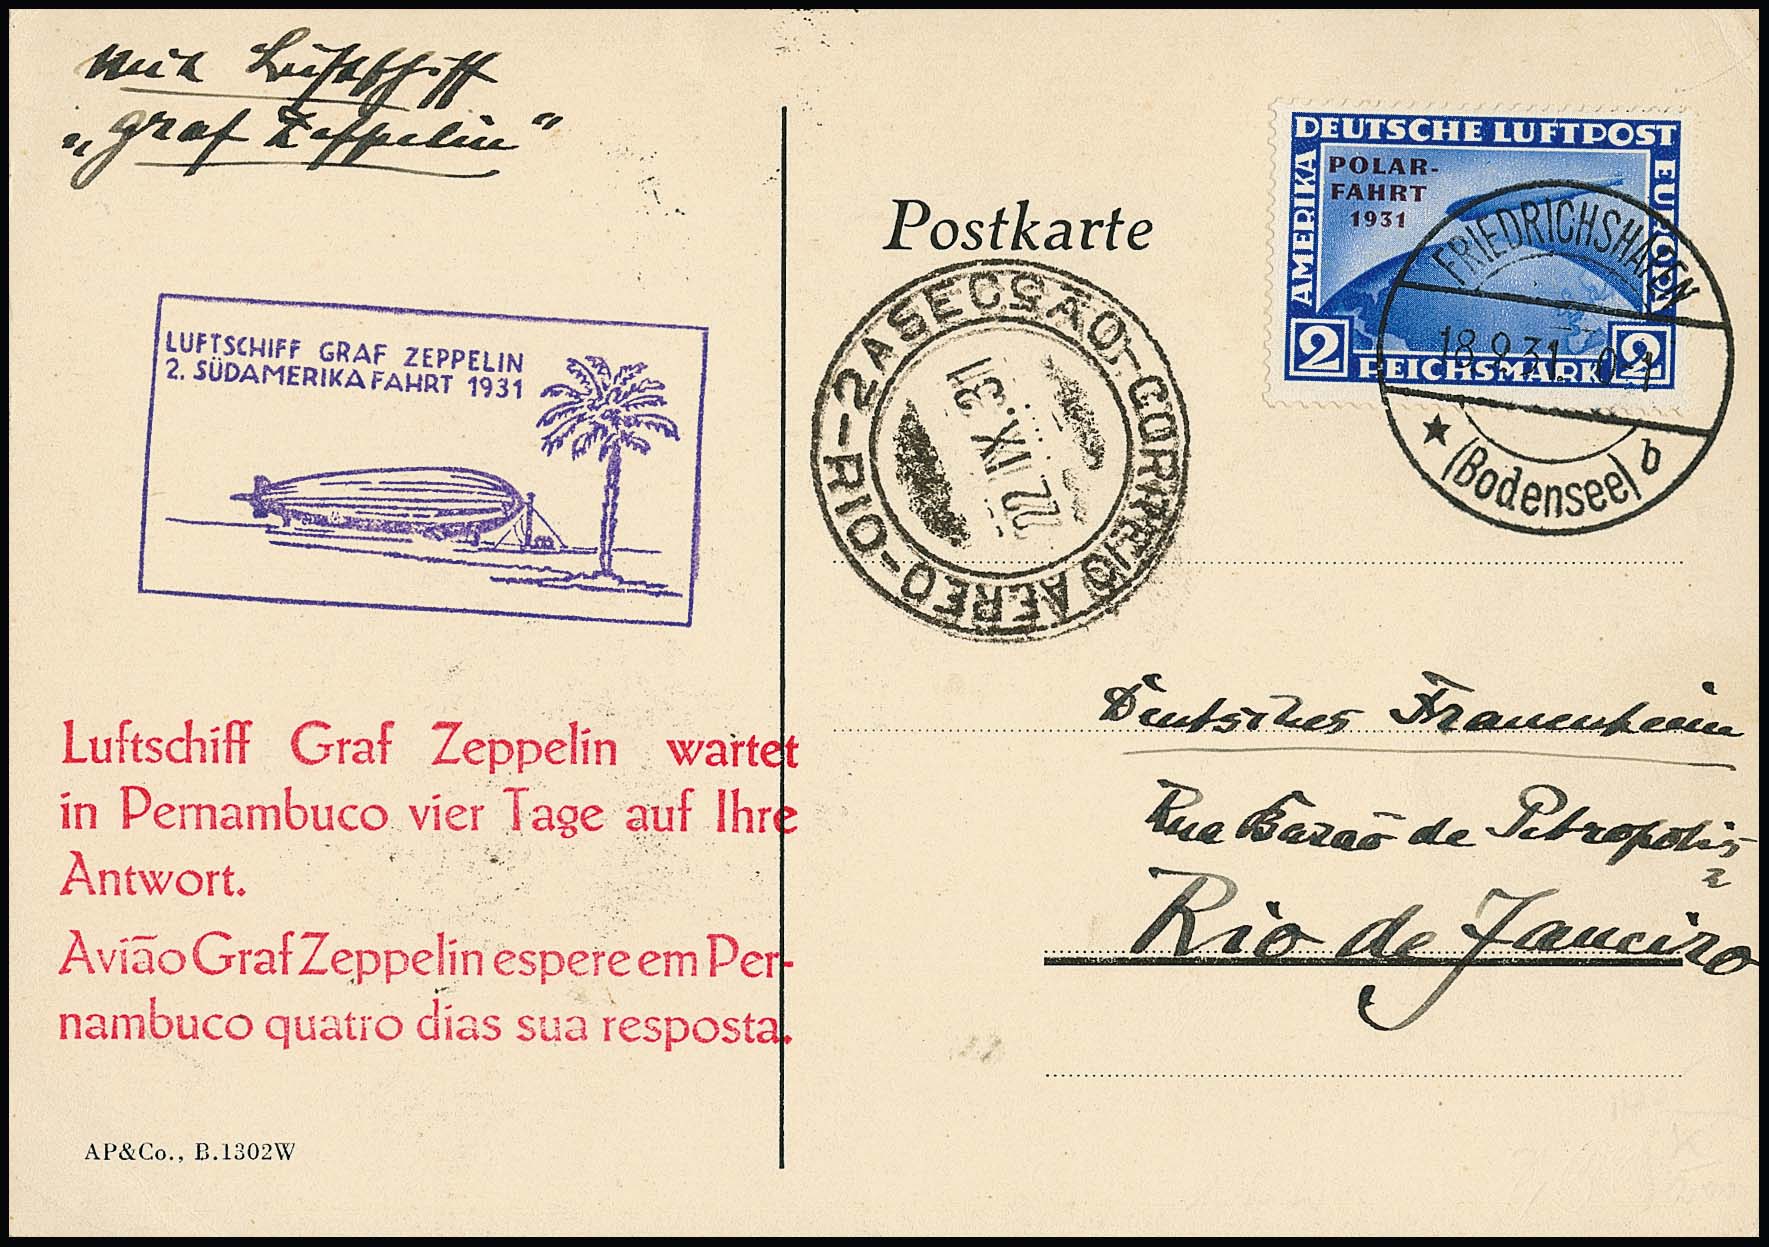 Mit Luftschiff
„Graf Zeppelin"
LUFTSCHIFF GRAF ZEPPELIN
2. SÜDAMERIKAFAHRT 1931
Luftschiff Graf Zeppelin wartet
in Pernambuco vier Tage auf Ihre
Antwort.
Avião Graf Zeppelin espere em Per-
nambuco quatro dias sua resposta.
AP&Co., B.1302W
Postkarte
2A SECÇÃO-CORREIO AEREO-RIO-
22 IX. 31
DEUTSCHE LUFTPOST
AMERIKA
EUROPA
POLAR-
FAHRT
1931
2 REICHSMARK 2
FRIEDRICHSHAFEN
18.9.31. 0-1
(Bodensee) b
Deutsches Frauenheim
Rua Barao de Petropolis
Rio de Janeiro